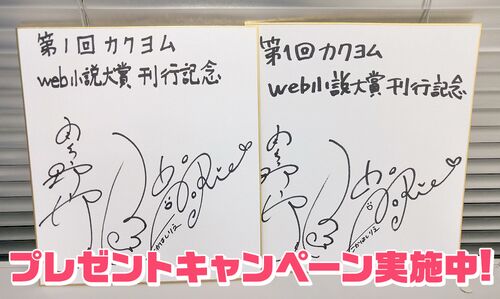 第1回カクヨム
web小説大賞 刊行記念
第1回カクヨム
web小説大賞 刊行記念
プレゼントキャンペーン実施中!